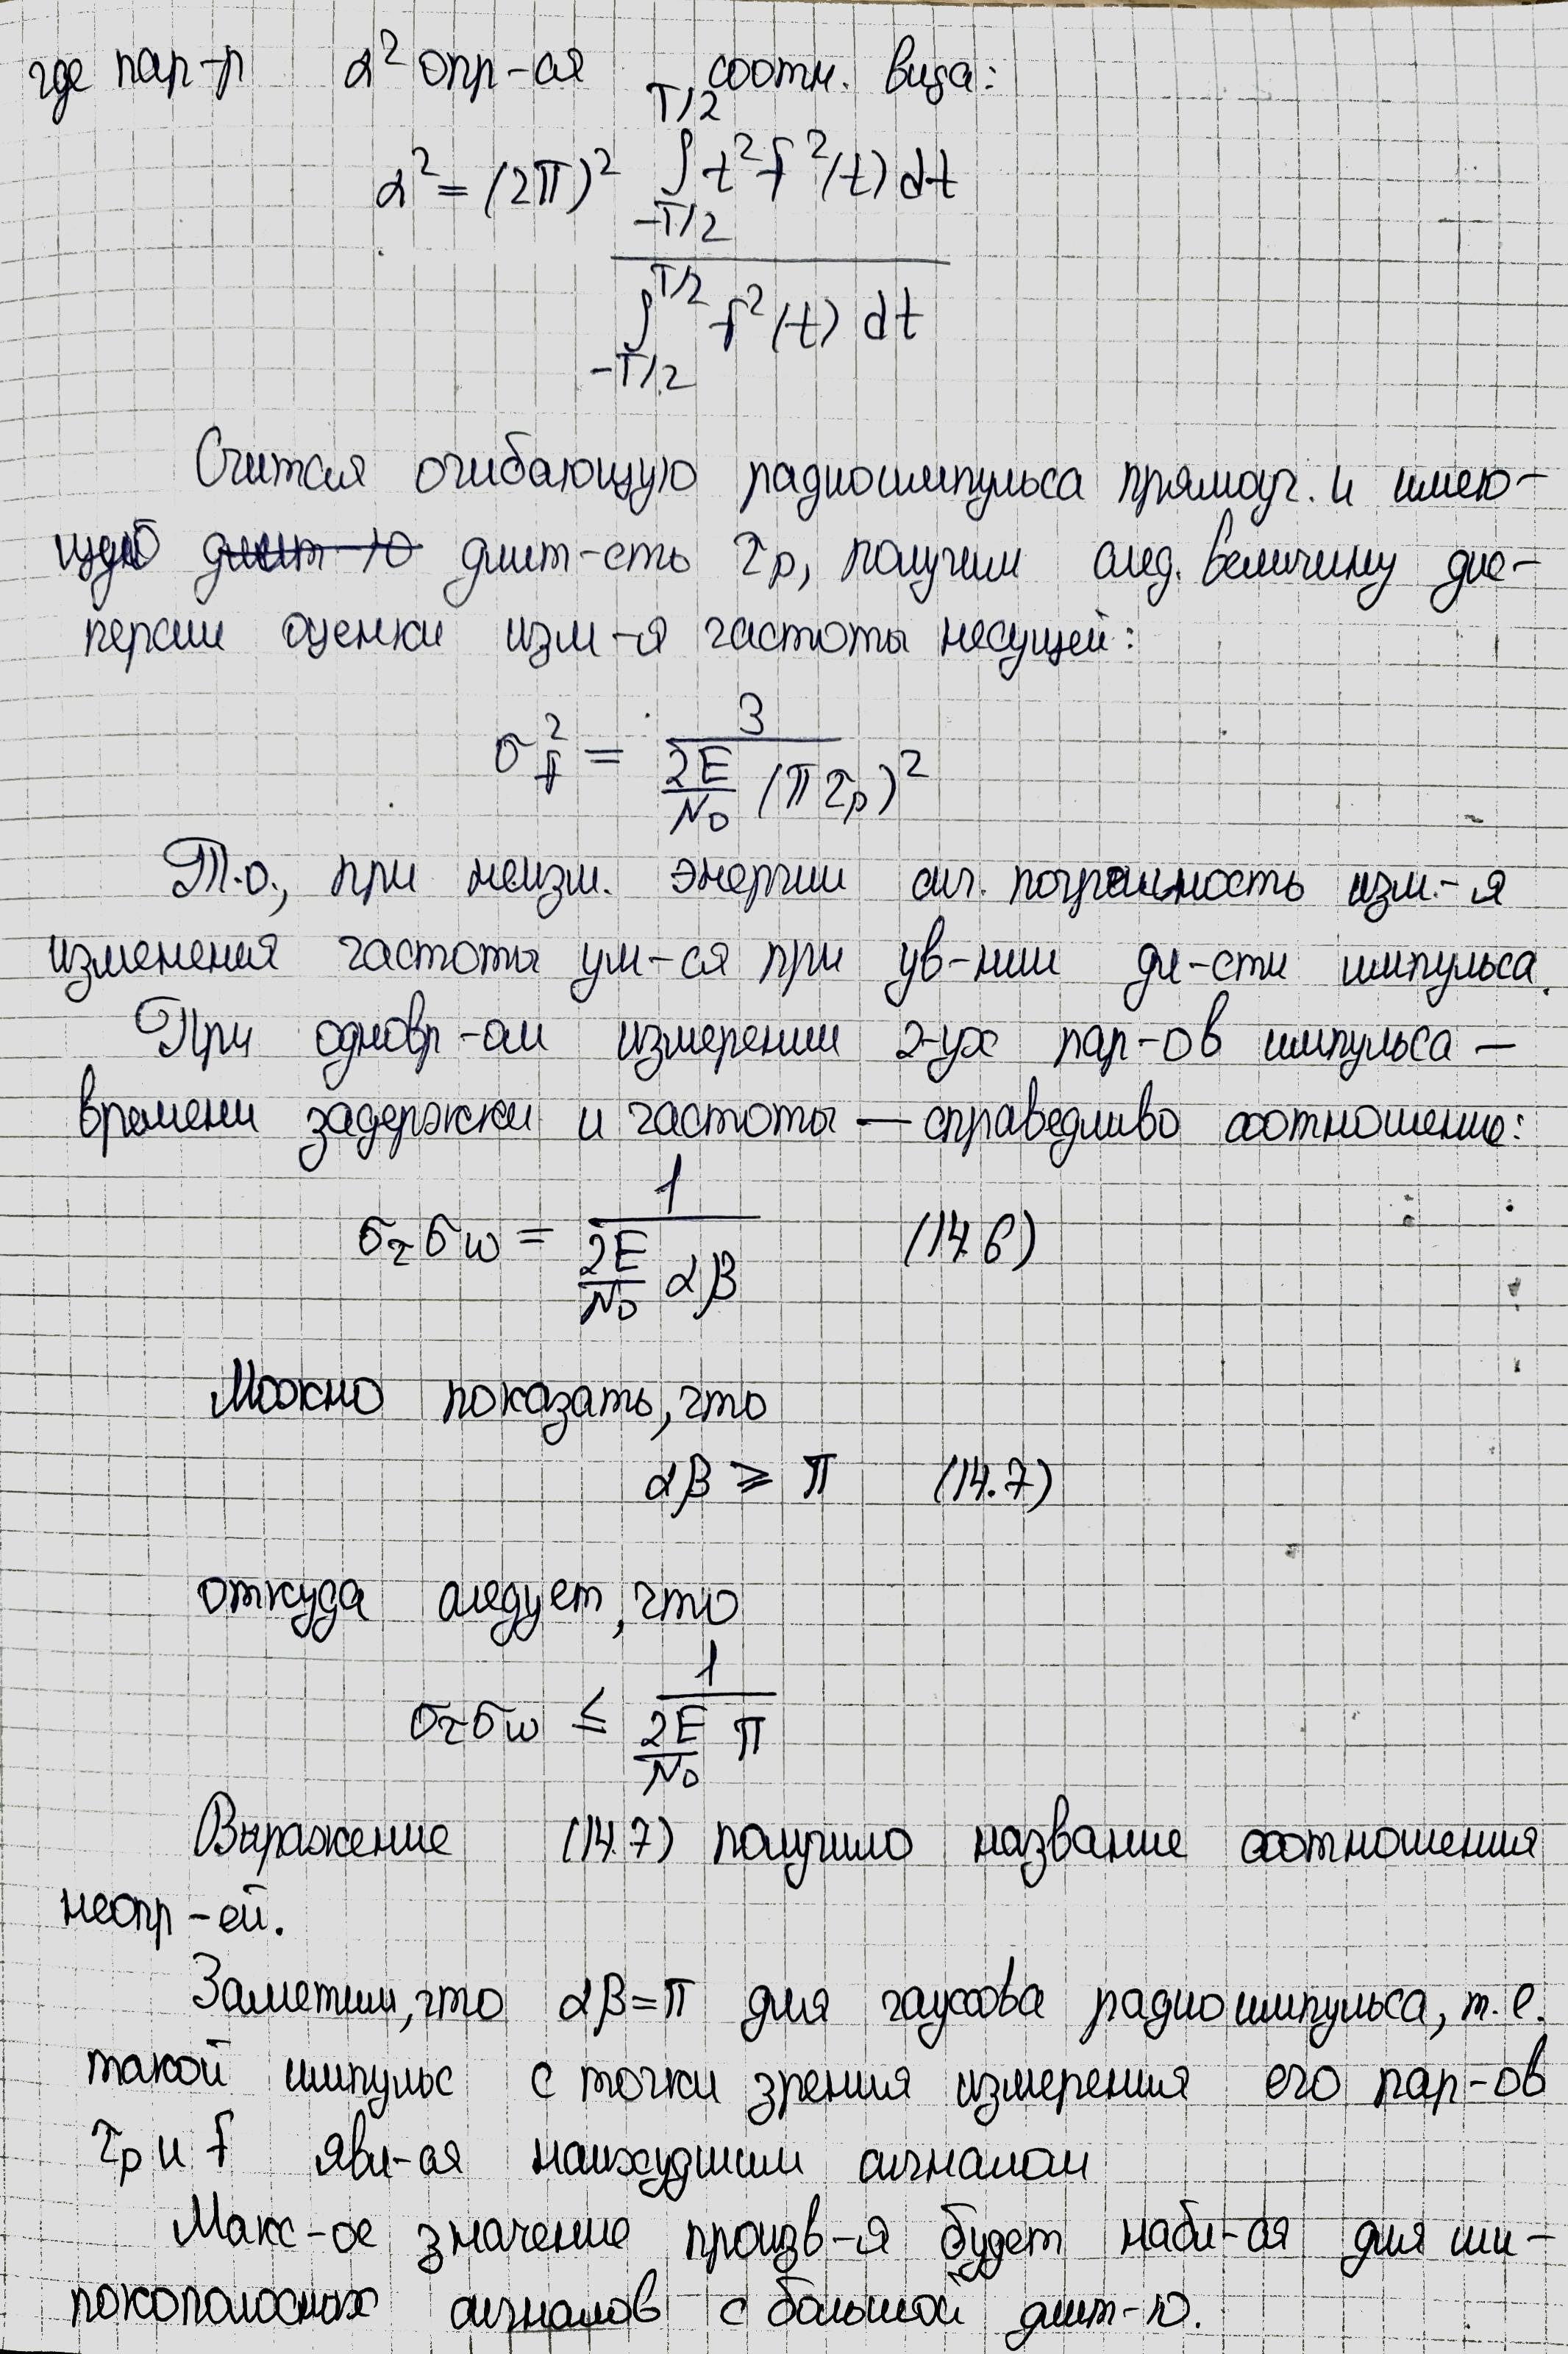 где пар-р α² опр-ся соотн. вида:
α² = (2π)² ∫_{-T/2}^{T/2} t² f²(t) dt / ∫_{-T/2}^{T/2} f²(t) dt
Считая огибающую радиоимпульса прямоуг. и имею-
щей длит-ю длит-сть τp, получим след. величину дис-
персии оценки изм-я частоты несущей:
σ²f = 3 / (2E/N0 (πτp)²)
Т.о., при неизм. энергии сиг. погрешность изм.-я
изменения частоты ум-ся при ув-нии дл-сти импульса.
При одновр-ом измерении 2-ух пар-ов импульса —
времени задержки и частоты — справедливо соотношение:
στσw = 1 / (2E/N0 αβ) (14.6)
Можно показать, что
αβ ≥ π (14.7)
откуда следует, что
στσw ≤ 1 / (2E/N0 π)
Выражение (14.7) получило название соотношения
неопр-ей.
Заметим, что αβ=π для гауссова радиоимпульса, т.е.
такой импульс с точки зрения измерения его пар-ов
τp и f явл-ся наихудшим сигналом
Макс-ое значение произв-я будет набл-ся для ши-
рокополосных сигналов с большой длит-ю.